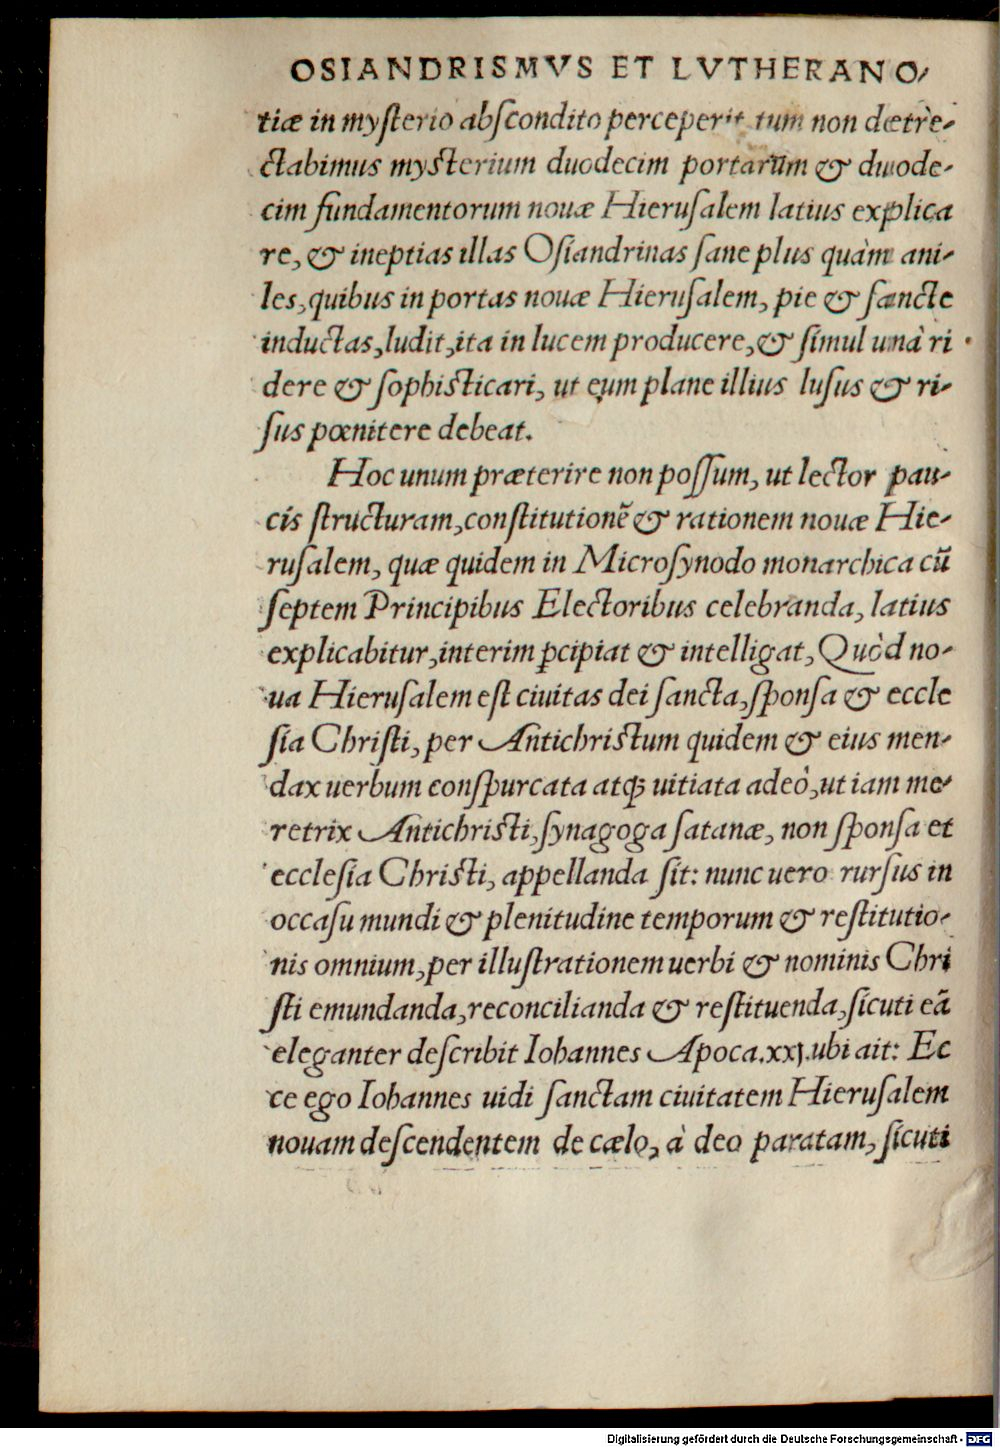 OSIANDRISMVS ET LVTHERANO-
tiæ in mysterio abscondito perceperit tum non dætre-
ctabimus mysterium duodecim portarum & duode-
cim fundamentorum nouæ Hierusalem latius explica
re, & ineptias illas Osiandrinas sane plus quàm ani-
les, quibus in portas nouæ Hierusalem, pie & sancte
inductas, ludit, ita in lucem producere, & simul unà ri
dere & sophisticari, ut eum plane illius lusus & ri-
sus pœnitere debeat.
Hoc unum præterire non possum, ut lector pau-
cis structuram, constitutionẽ & rationem nouæ Hie-
rusalem, quæ quidem in Microsynodo monarchica cũ
septem Principibus Electoribus celebranda, latius
explicabitur, interim ꝑcipiat & intelligat, Quòd no-
ua Hierusalem est ciuitas dei sancta, sponsa & eccle
sia Christi, per Antichristum quidem & eius men-
dax uerbum conspurcata atq; uitiata adeò, ut iam me-
retrix Antichristi, synagoga satanæ, non sponsa et
ecclesia Christi, appellanda sit: nunc uero rursus in
occasu mundi & plenitudine temporum & restitutio-
nis omnium, per illustrationem uerbi & nominis Chri
sti emundanda, reconcilianda & restituenda, sicuti eã
eleganter describit Iohannes Apoca.xxj. ubi ait: Ec
ce ego Iohannes uidi sanctam ciuitatem Hierusalem
nouam descendentem de cælo, à deo paratam, sicuti
Digitalisierung gefördert durch die Deutsche Forschungsgemeinschaft - DFG